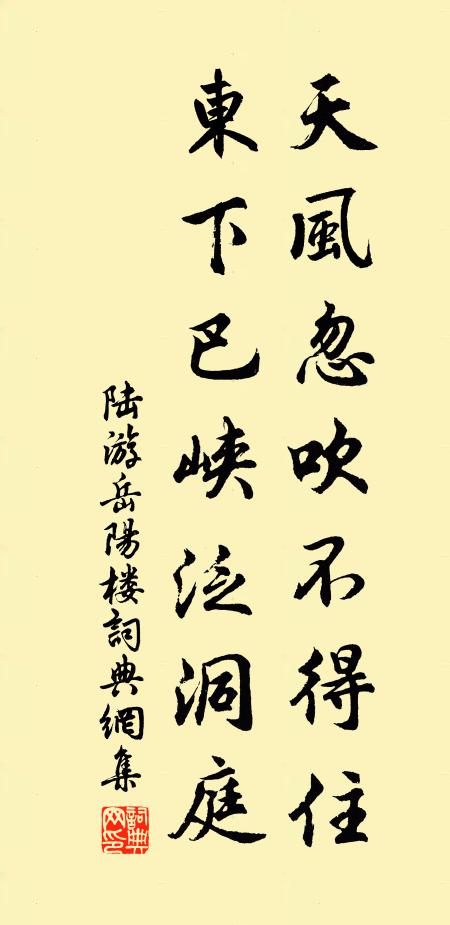 天風忽吹不得住
東下巴峡泛洞庭
陆游岳陽楼詞典網集
詞典
网印